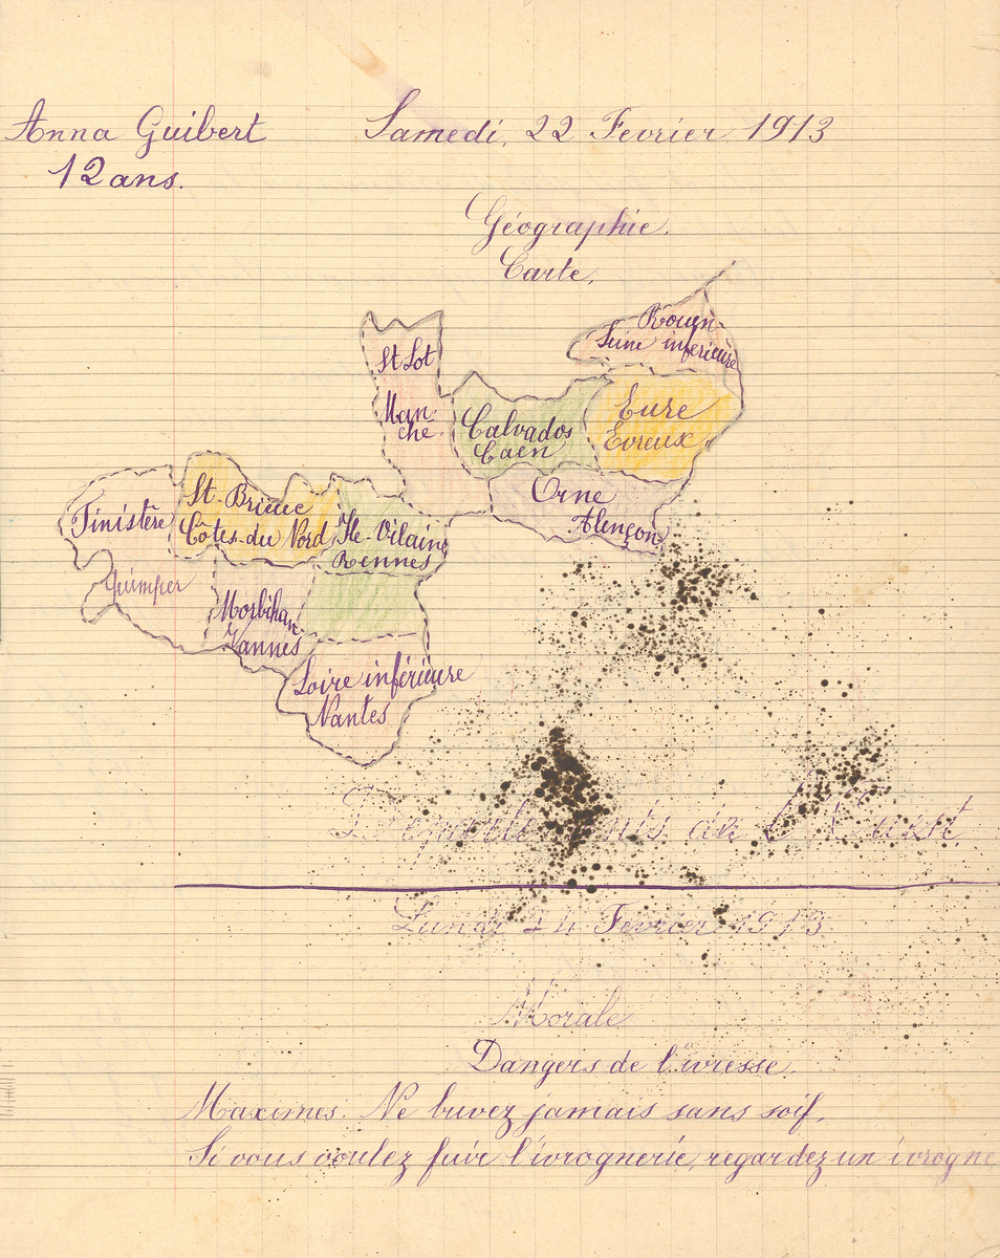 Anna Guibert
12 ans.
Samedi, 22 Fevrier 1913
Géographie.
Carte.
Rouen
Seine inférieure
St Lot
Man-
che.
Calvados
Caen
Eure
Evreux
Orne
Alençon
St-Brieuc
Côtes-du Nord
Finistère
Ile-Vilaine
Rennes
Quimper
Morbihan
Vannes
Loire inférieure
Nantes
Départements de l'Ouest
Lundi 24 Fevrier 1913.
Morale
Dangers de l'ivresse
Maximes: Ne buvez jamais sans soif.
Si vous voulez fuir l'ivrognerie, regardez un ivrogne